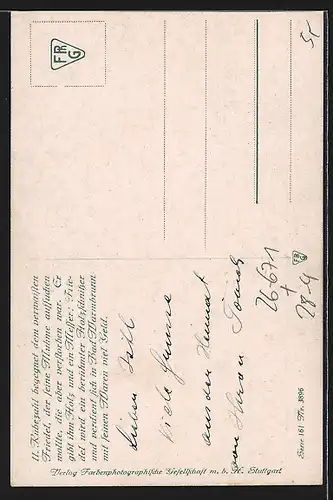 11. Rübezahl begegnet dem verwaisten
Friedel, der seine Muhme aufsuchen
wollte, die aber verstorben war. Er
gibt ihm Holz und ein Messer; Frie-
del wird ein berühmter Holzschnitzer
und verdient sich in Bad Warmbrunn
mit seinen Waren viel Geld.
Lieben
Viele Grüsse
aus der Heimat
von
Verlag Farbenphotographische Gesellschaft m. b. H. Stuttgart
Serie 161 Nr. 3896
FRG
FRG
26-671
+
28-9